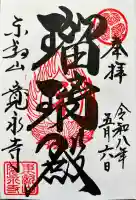 奉拝
令和八年
五月六日
瑠璃殿
東叡山
寛永寺